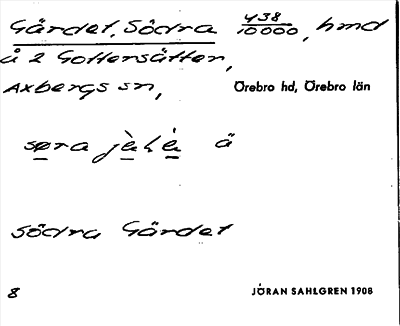 Gärdet, Södra 438/10000, hmd
å 2 Gottersätter,
Axbergs sn, Örebro hd, Örebro län
søra jàlè ä
Södra Gärdet
8 JÖRAN SAHLGREN 1908